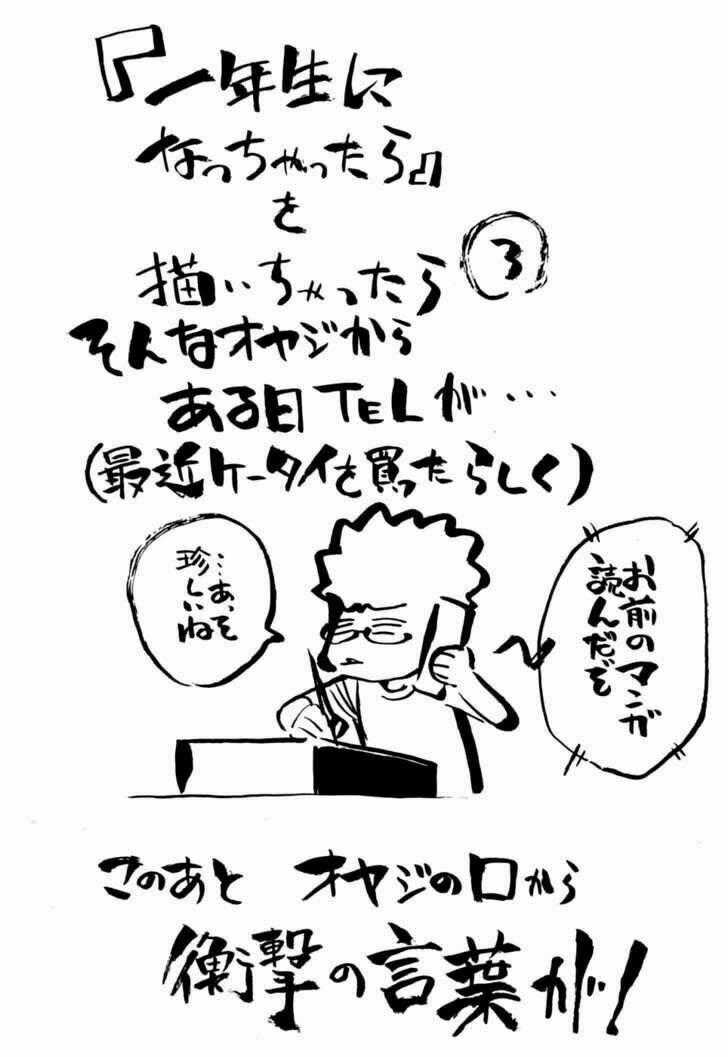 『一年生に
なっちゃったら』
を
描いちゃったら
3
そんなオヤジから
ある日TELが…
(最近ケータイを買ったらしく)
お前のマンガ
読んだぞ
…あ、そ
珍しいね
このあと オヤジの口から
衝撃の言葉が!